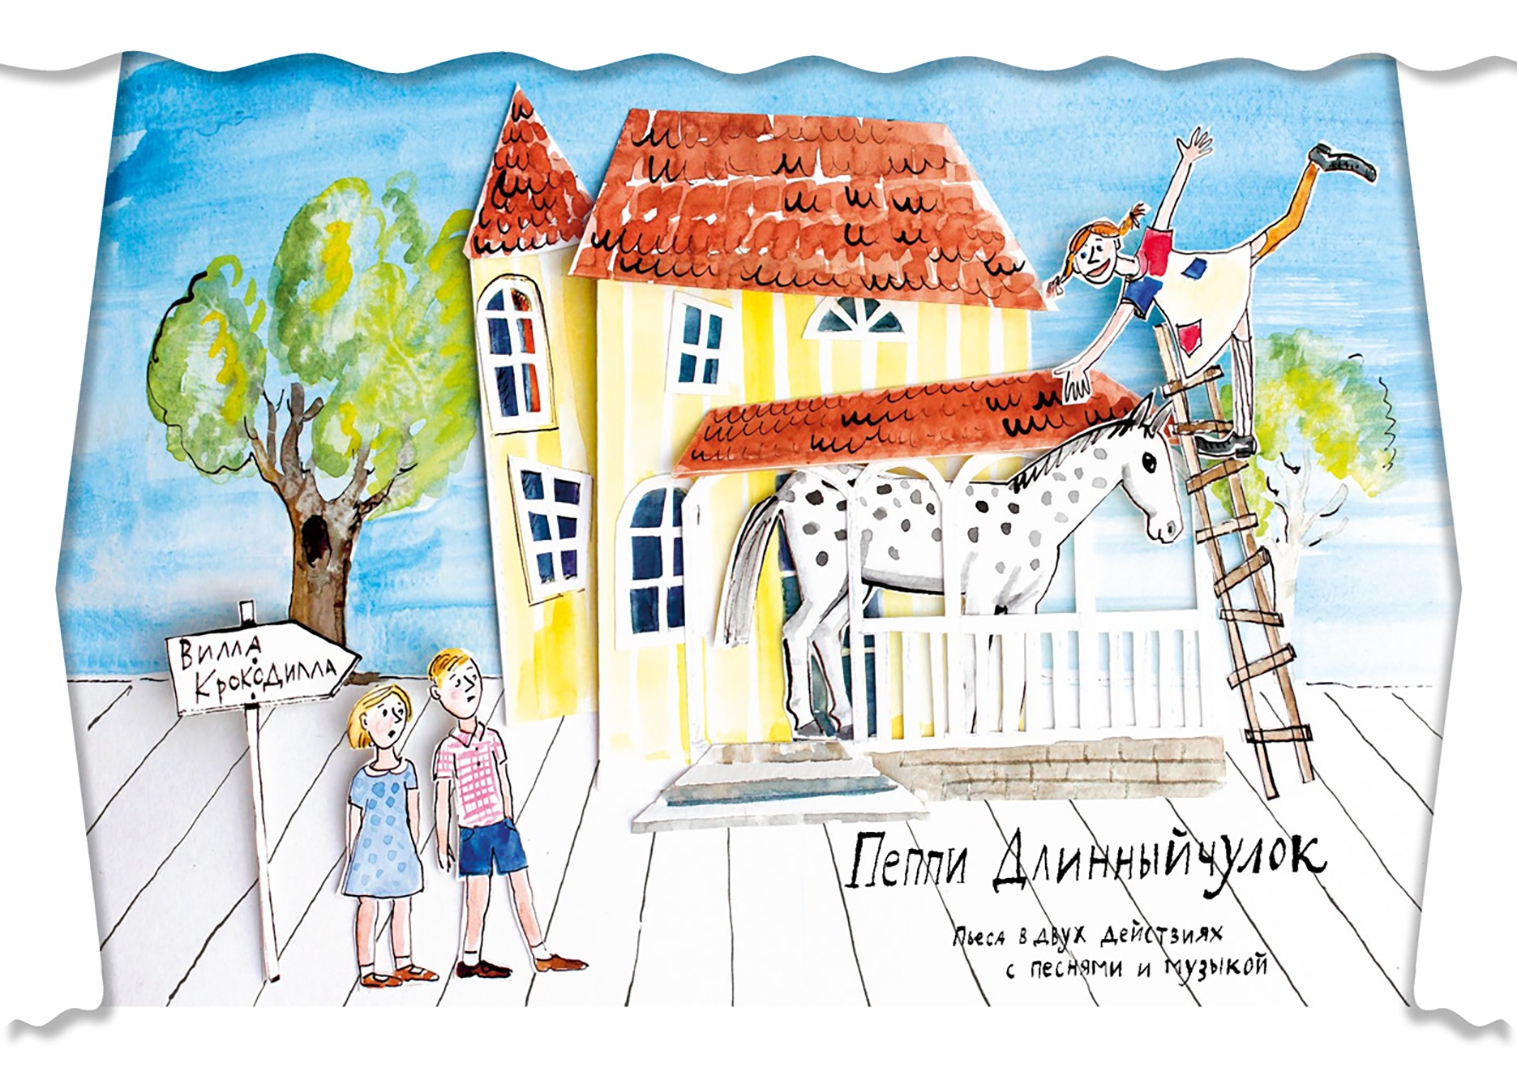 Вилла
Крокодилла
Пеппи Длинныйчулок
Пьеса в двух действиях
с песнями и музыкой